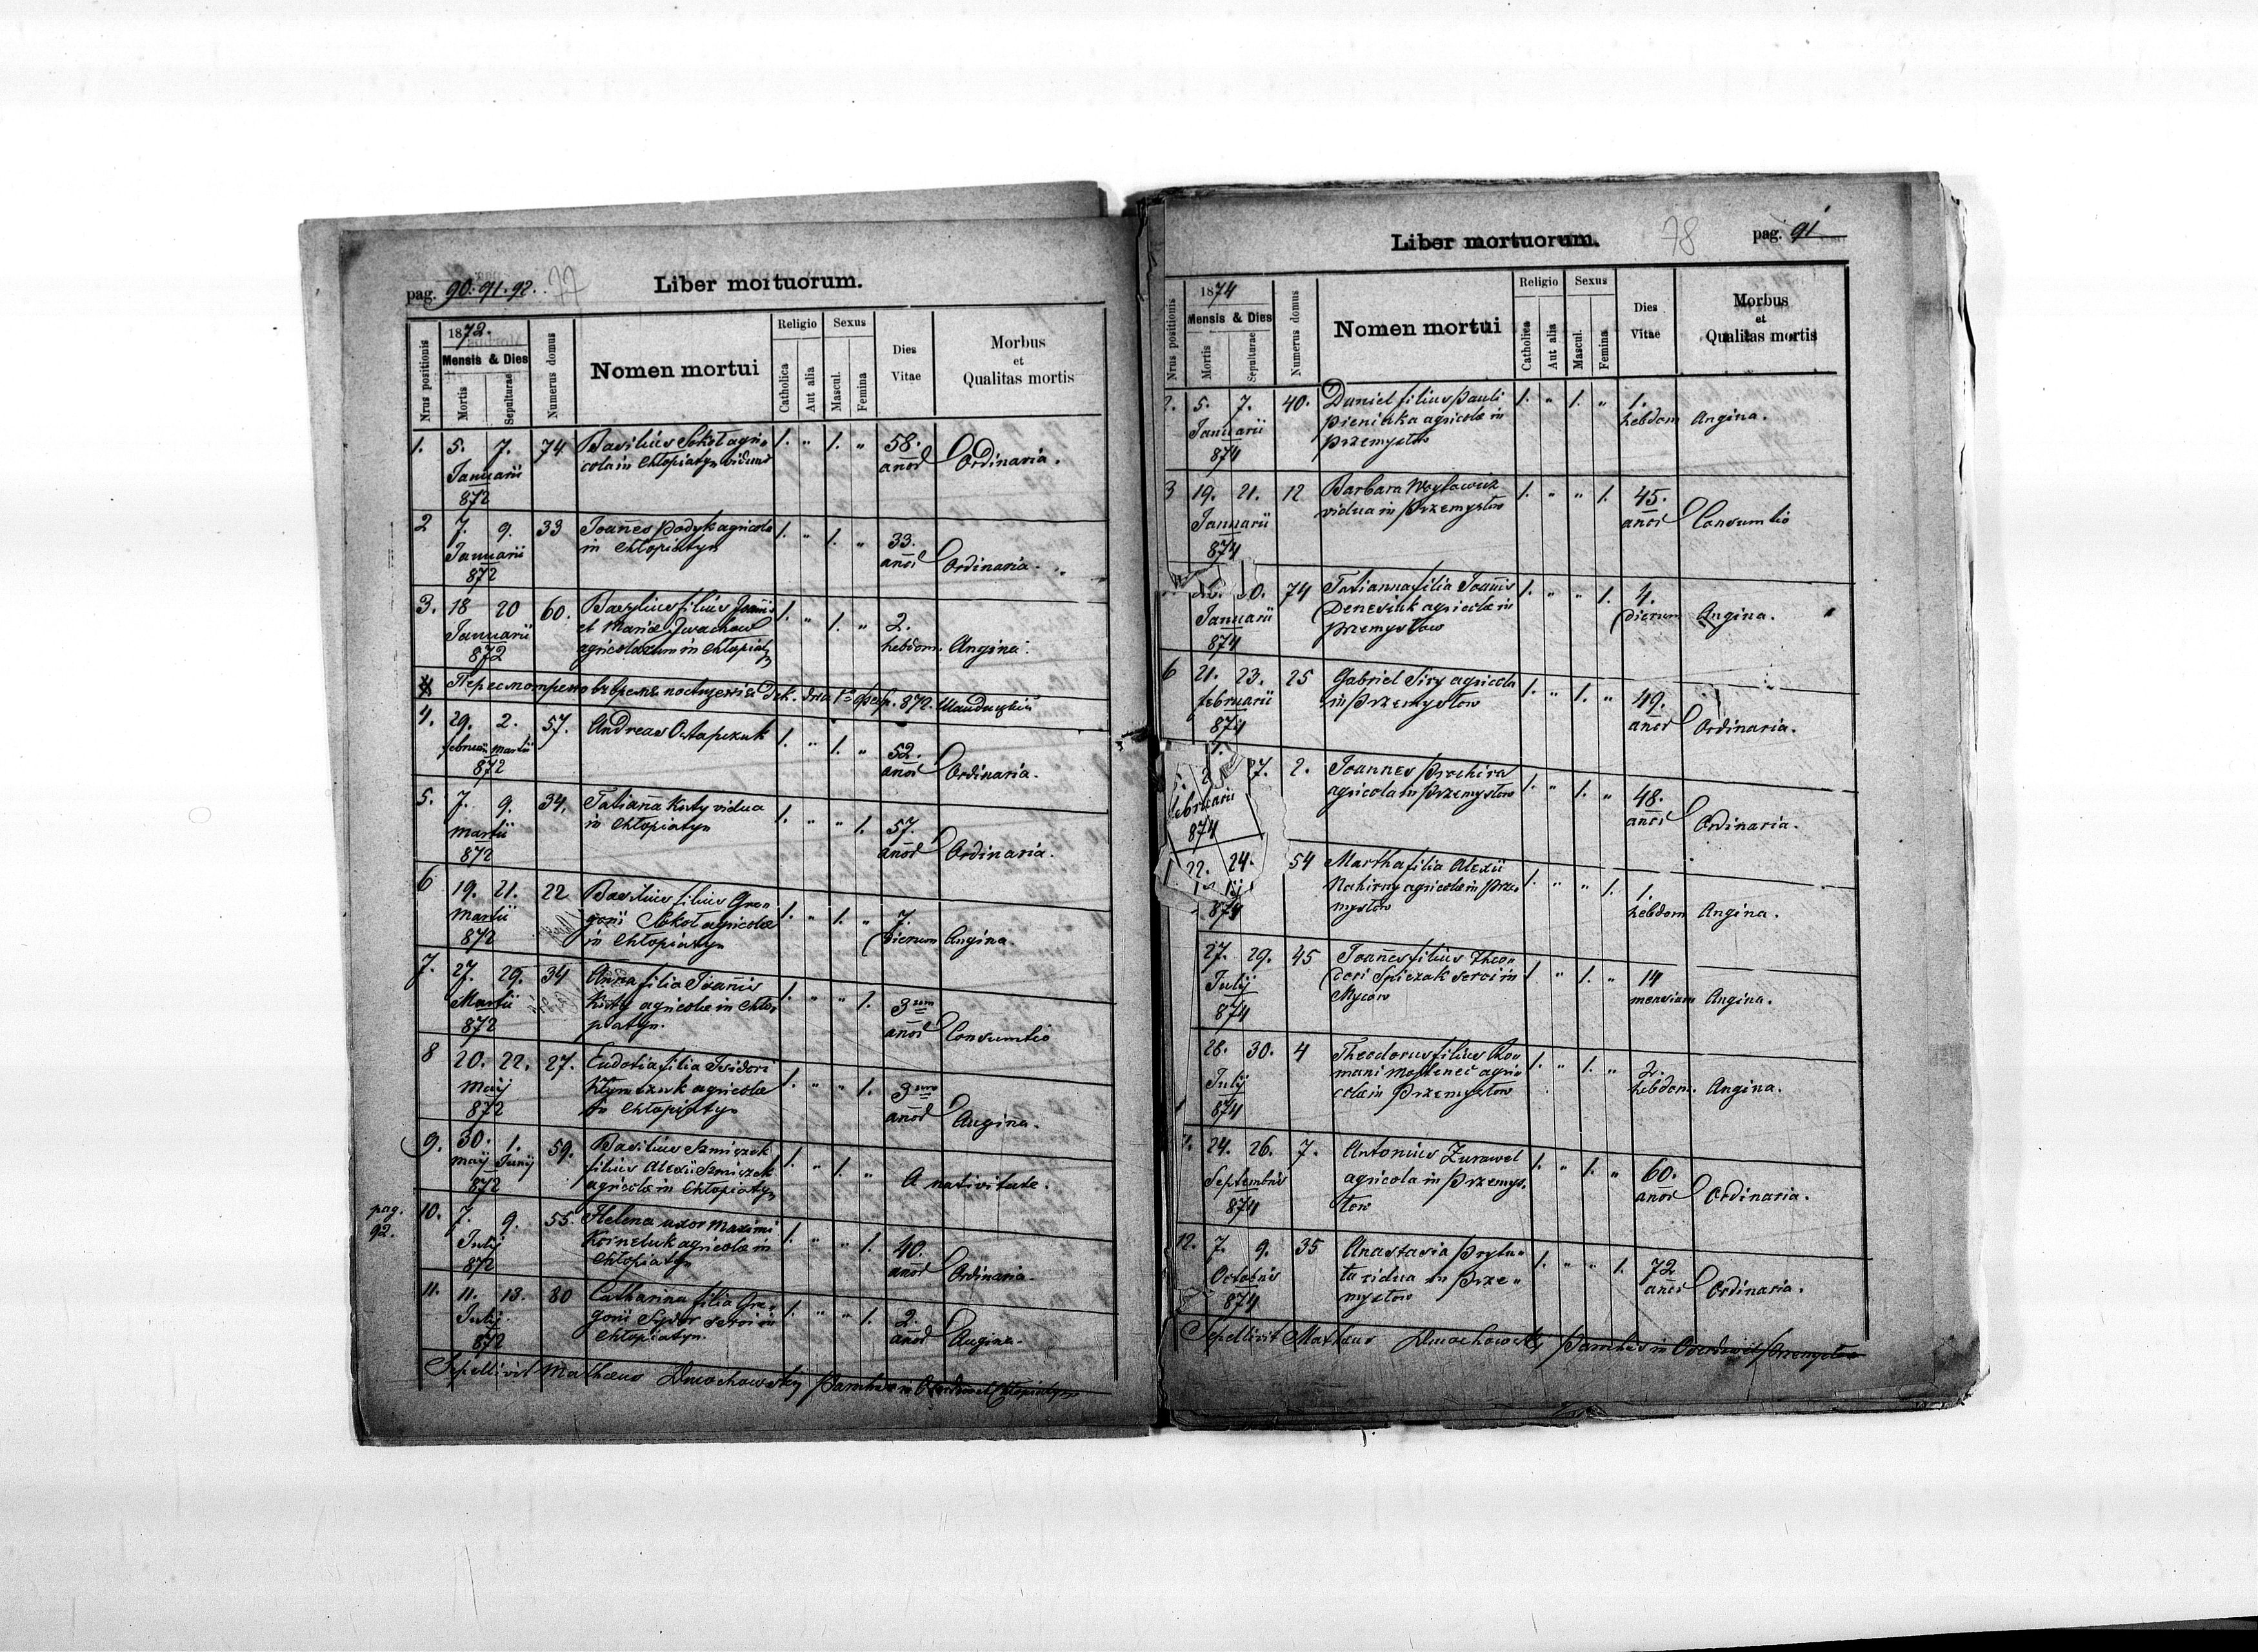 pag. 90. 91. 92. 77
Liber mortuorum.
Nrus positionis
1872.
Mensis & Dies
Mortis
Sepulturae
Numerus domus
Nomen mortui
Religio
Catholica
Aut alia
Sexus
Mascul.
Femina
Dies
Vitae
Morbus
et
Qualitas mortis
1. 5. 7. 74 Basilius Sokoł agri= 1. " 1. " 58.
Januarii cola in Chłopiatyn viduus anor Ordinaria.
872
2 7. 9. 33 Joanes agricola 1. " 1. " 33.
Januarii in Chłopiatyn anor Ordinaria.
872
3. 18 20 60. Basylius filius Joanis 1. " 1. " 2.
Januarii et Mariæ Iwachow hebdom. Angina.
872 agricolarum in Chłopiatyn
4. 29. 2. 57. Andreas Ostapczuk 1. " 1. " 52.
februarii Martii anor Ordinaria.
872
5. 7. 9. 34. Tatiana Kuty vidua 1. " " 1. 57.
Martii in Chłopiatyn anor Ordinaria.
872
6 19. 21. 22 Basilius filius Gre= 1. " 1. " 7.
Martii gorii Sokoł agricolæ dierum Angina.
872 in Chłopiatyn
7. 27. 29. 34 Anna filia Joanis 1. " " 1. 3
Martii Kuty agricolæ in Chło= anor Consumtio
872 piatyn.
8 20. 22. 27. Eudotia filia Isidori 1. " " 1. 3
Maij Kłymczuk agricolæ anor Angina.
872 in Chłopiatyn
9. 30. 1. 59. Basilius Szmiszek 1. " 1. " A nativitate.
Maij Junij filius Alexii Szmiszek
872 agricolæ in Chłopiatyn
pag.
92.
10. 7. 9. 55. Helena uxor Maximi 1. " " 1. 40.
Julij Korneluk agricolæ in anor Ordinaria.
872 Chłopiatyn
11. 11. 13. 80 Catharina filia Gre= 1. " " 1. 2.
Julij gorii Sydor servi in anor Angina.
872 Chłopiatyn.
Sepellivit Mathæus Dmochowskij Parochus in
Liber mortuorum.
78
pag. 91
Nrus positionis
1874
Mensis & Dies
Mortis
Sepulturae
Numerus domus
Nomen mortui
Religio
Catholica
Aut alia
Sexus
Mascul.
Femina
Dies
Vitae
Morbus
et
Qualitas mortis
2. 5. 7. 40. Daniel filius Pauli 1. " 1. " 1.
Januarii agricolæ in hebdom Angina.
874 Przemysłow
3 19. 21. 12 Barbara 1. " " 1. 45.
Januarii vidua in Przemysłow anor Consumtio
874
74 Tatianna filia Joanis 1. " " 1. 4.
Januarii Denesiuk agricolæ in dierum Angina.
874 Przemysłow
6 21. 23. 25 Gabriel Siry agricola 1. " 1. " 49.
februarii in Przemysłow anor Ordinaria.
874
7. 2. Joannes Prochira 1. " 1. " 48.
februarii agricola in Przemysłow anor Ordinaria.
874
22. 24. 54 Martha filia Alexii 1. " " 1. 1.
Nahirny agricolæ in Prze= hebdom Angina.
874 mysłow
27. 29. 45 Joanes filius Theo= 1. " 1. " 14
Julij dori servi in mensium Angina.
874 Mycow
28. 30. 4 Theodorus filius Ro= 1. " 1. " 2.
Julij mani agri= hebdom. Angina.
874 colæ in Przemysłow
24. 26. 7. Antonius Zurawel 1. " 1. " 60.
Septembris agricola in Przemys= anor Ordinaria.
874 łow
12. 7. 9. 35 Anastasia Pryta= 1. " " 1. 72
Octobris ła vidua in Prze= anor Ordinaria.
874 mysłow
Sepellivit Matheus Dmochowskij Parochus in Przemysłow